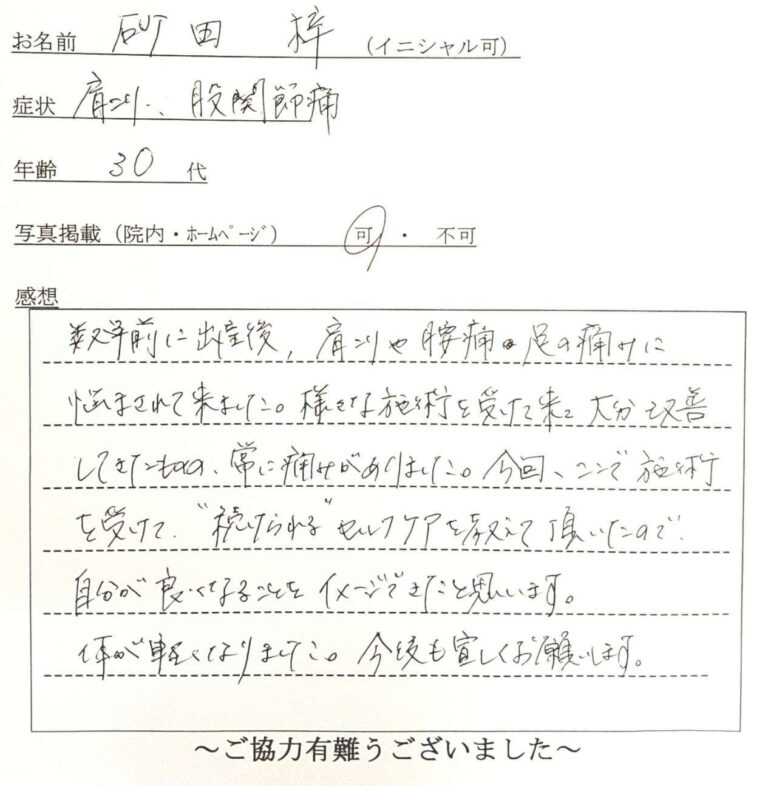 お名前 砂田 梓 (イニシャル可)
症状 肩こり、股関節痛
年齢 30 代
写真掲載（院内・ホームページ） 可 ・ 不可
感想
数年前に出産後、肩こりや腰痛・足の痛みに
悩まされて来ました。様々な施術を受けて来て 大分改善
してきたものの、常に痛みがありました。今回、ここで施術
を受けて、"続けられる"セルフケアを教えて頂いたので、
自分が良くなることをイメージできたと思います。
体が軽くなりました。今後も宜しくお願いします。
～ご協力有難うございました～